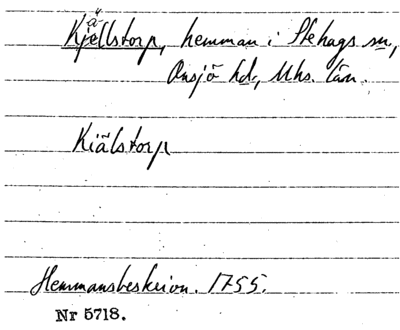 Kjellstorp, hemman i Stehags sn,
Onsjö hd, Mhs. län.
Kiälstorp
Hemmansbeskrivn. 1755.
Nr 5718.